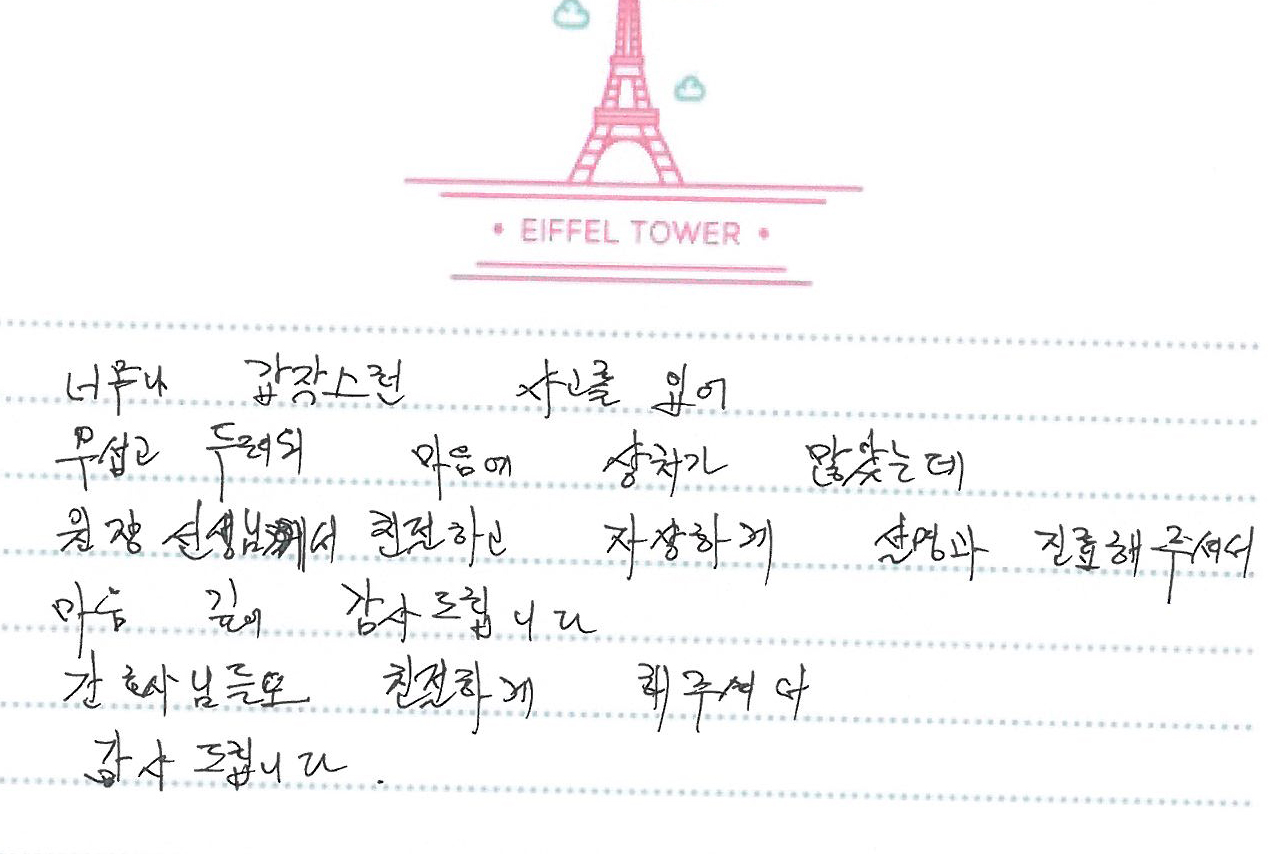 EIFFEL TOWER
너무나 갑작스런 사고를 입어
무섭고 두려워 마음에 상처가 많았는데
원장 선생님께서 친절하고 자상하게 설명과 진료해 주셔서
마음 깊이 감사드립니다
간호사님들도 친절하게 해주셔서
감사드립니다.